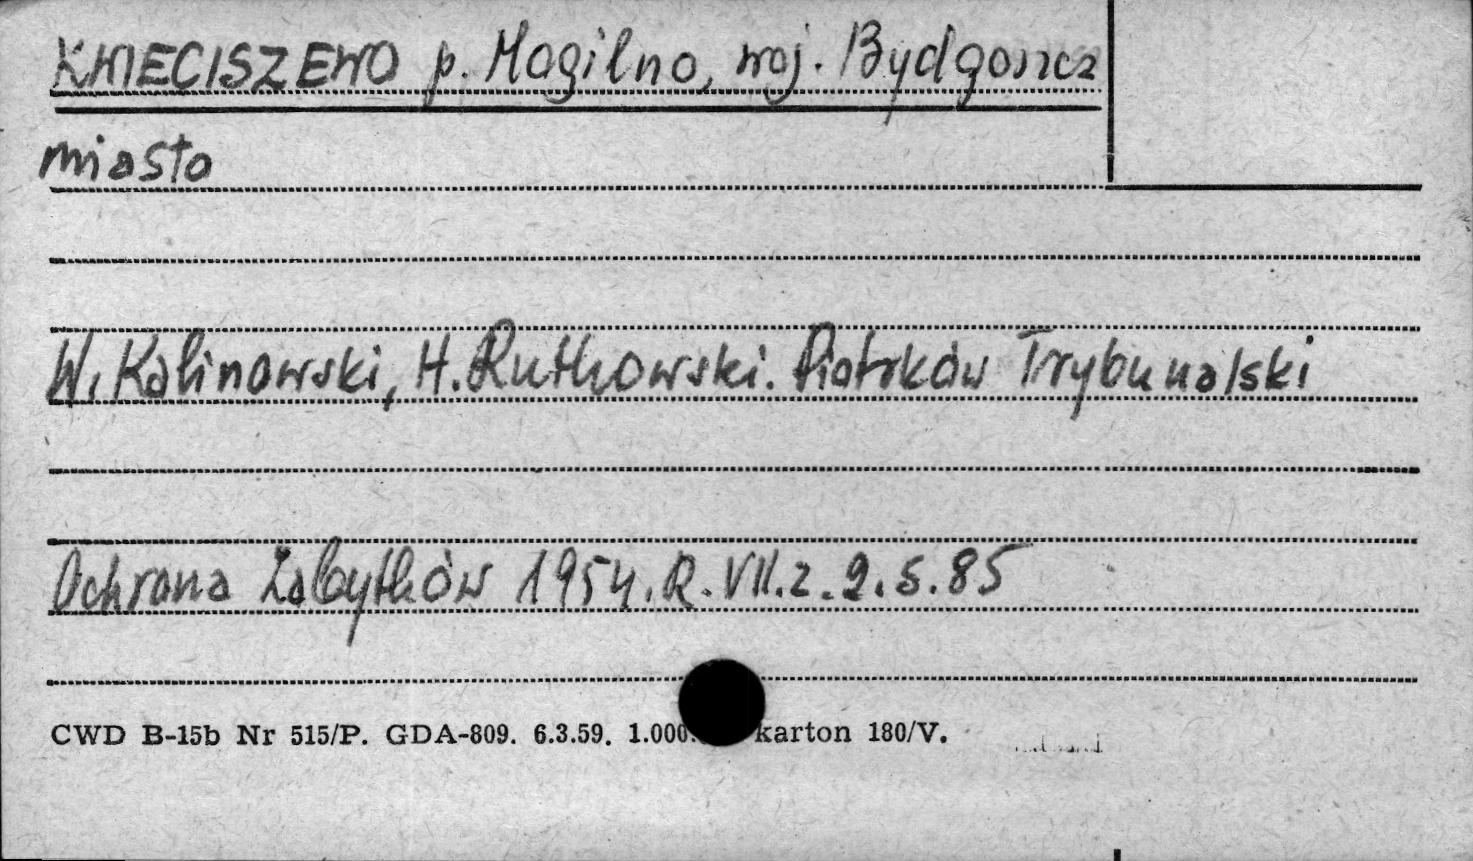 KWIECISZEWO p. Mogilno, woj. Bydgoszcz
miasto
W. Kalinowski, H. Rutkowski. Piotrków Trybunalski
Ochrona Zabytków 1954. R. VII. z. 2. s. 85
CWD B-15b Nr 515/P. GDA-809. 6.3.59. 1.000. karton 180/V.